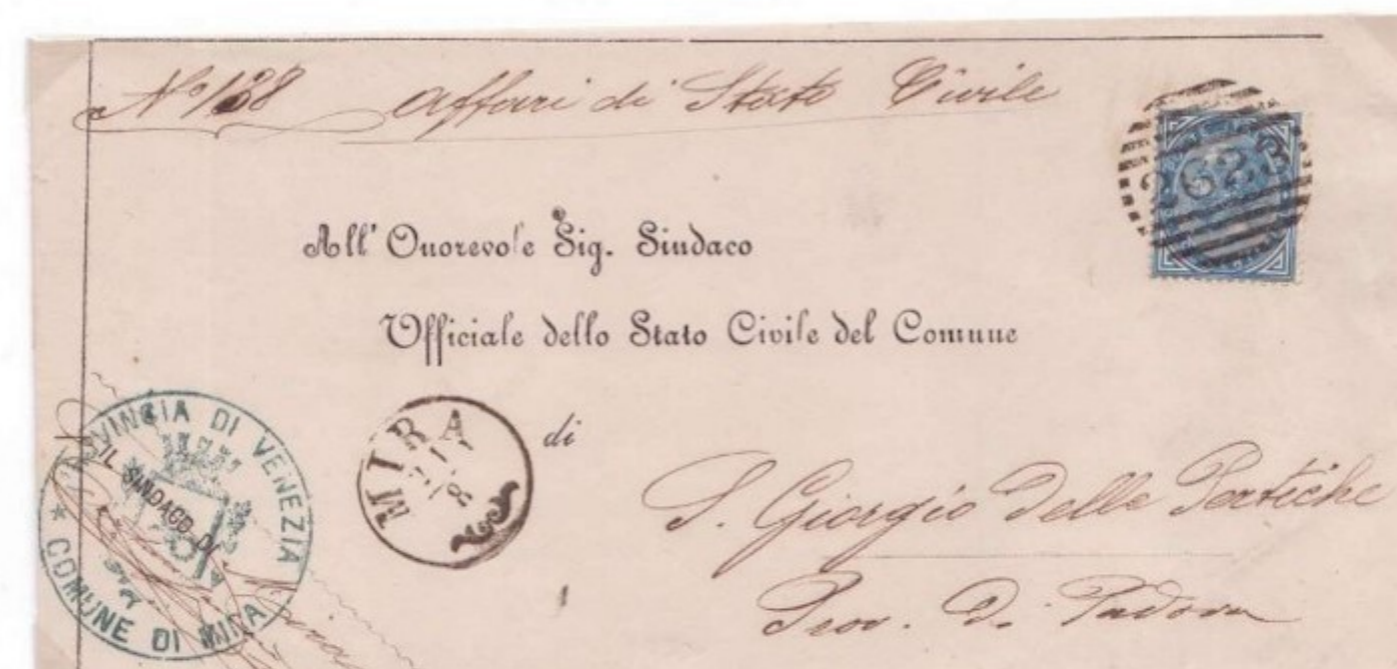 N° 138 Affari di Stato Civile
2623
All' Onorevole Sig. Sindaco
Ufficiale dello Stato Civile del Comune
di
MIRA
S. Giorgio Delle Pertiche
Prov. D. Padova
PROVINCIA DI VENEZIA
IL SINDACO DI
* COMUNE DI MIRA